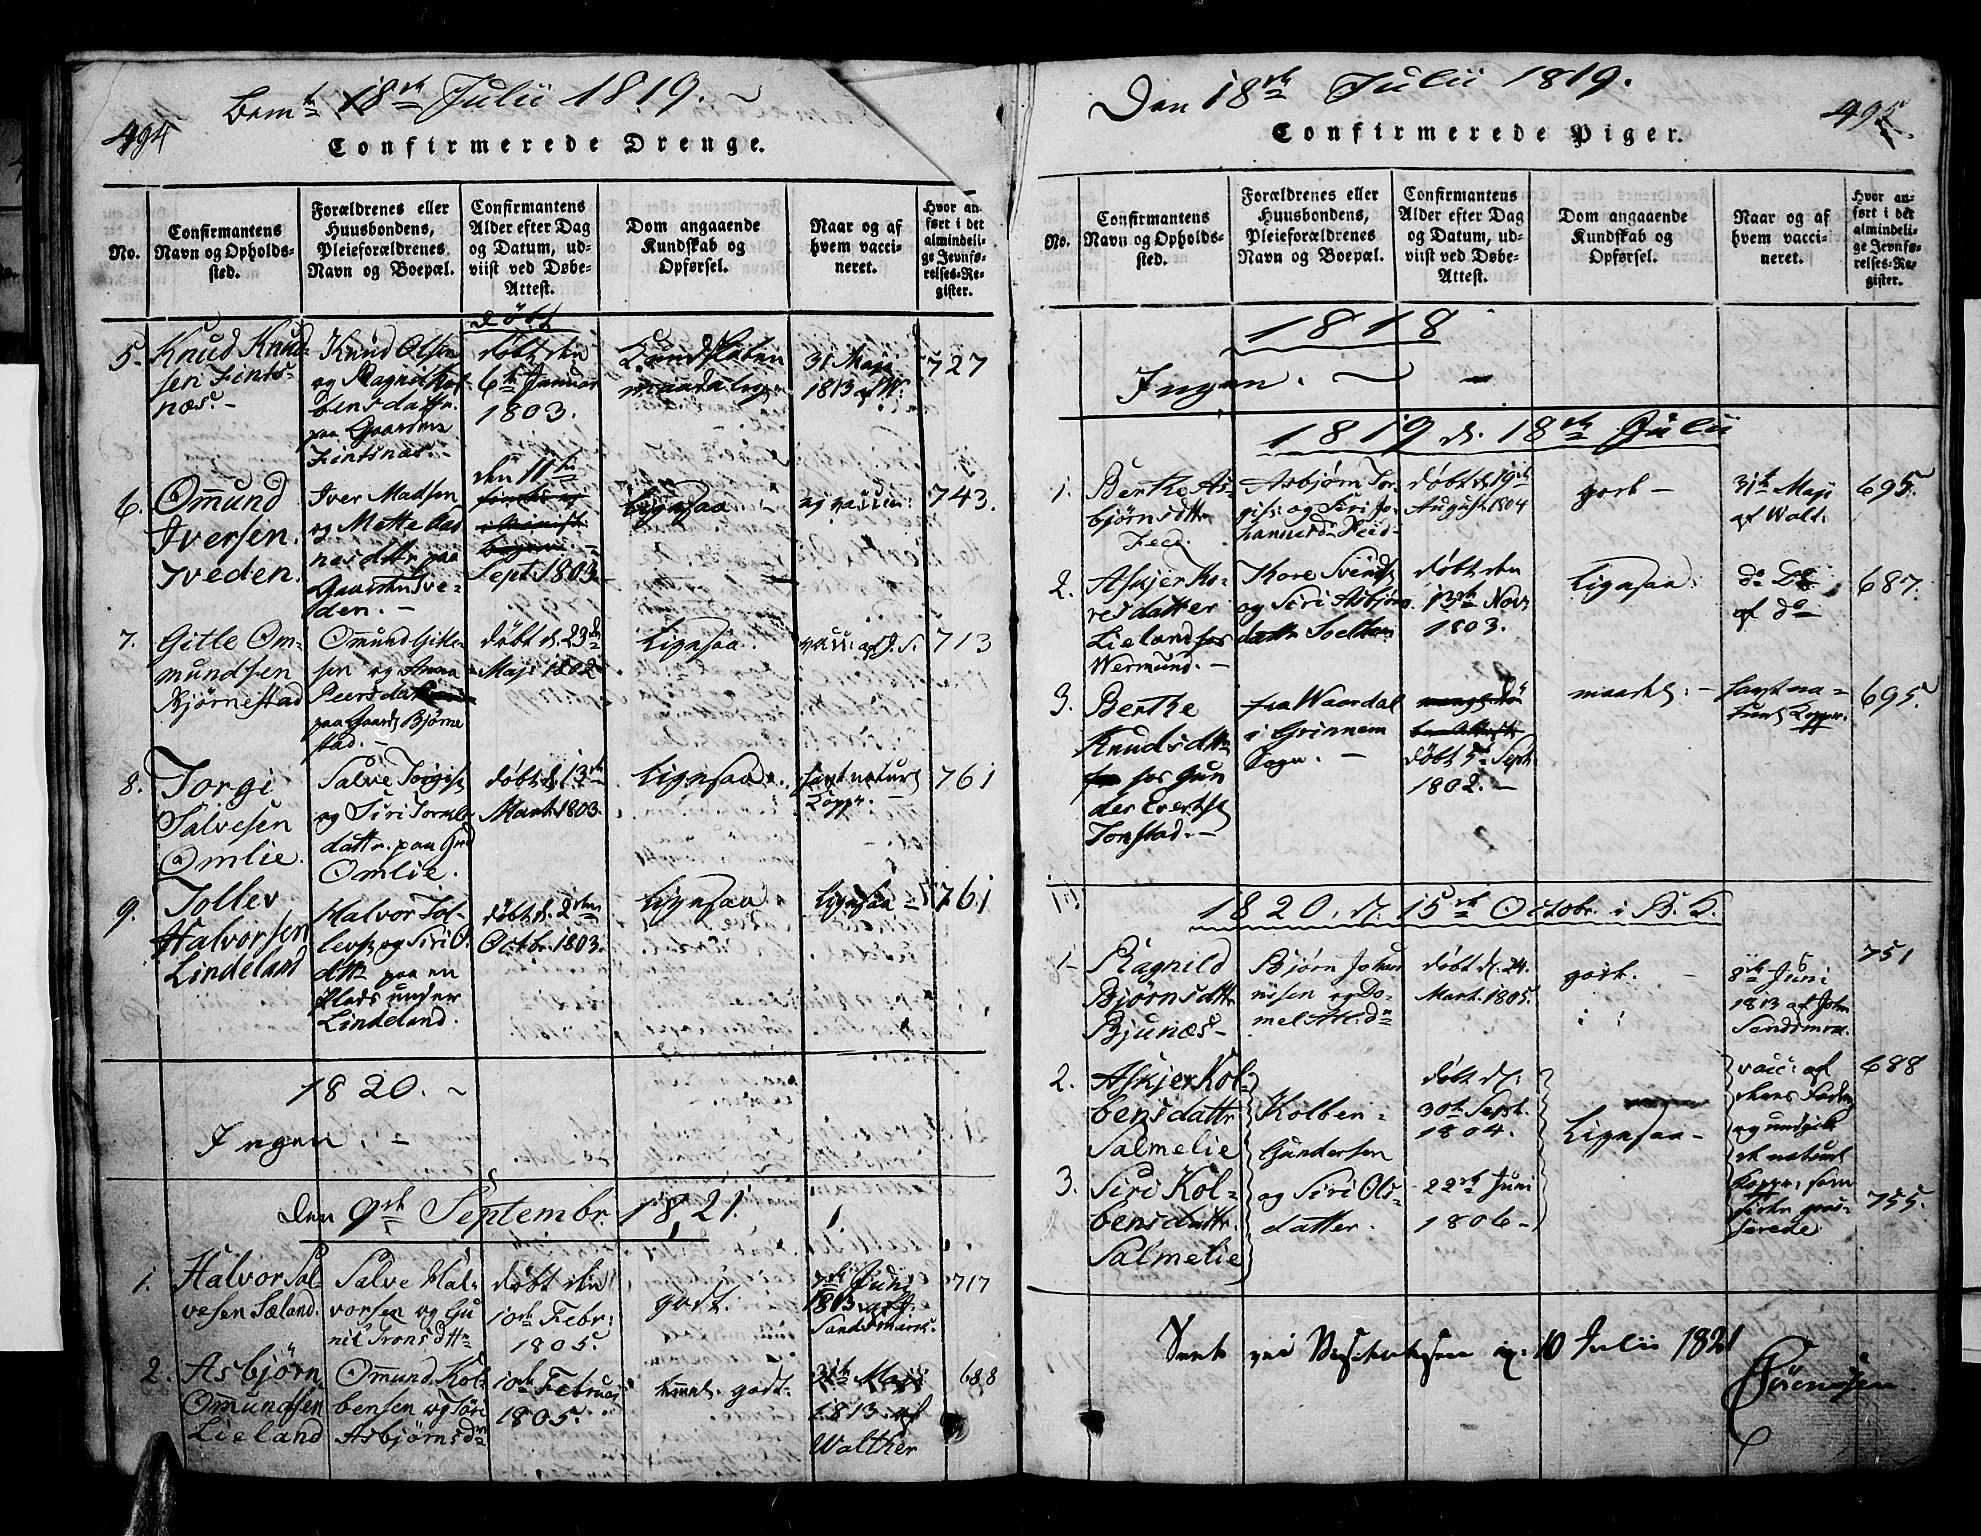 494
18de Julii 1819.
Confirmerede Drenge.
No.
Confirmantens
Navn og Opholds-
sted.
Forældrenes eller
Huusbondens,
Pleieforældrenes
Navn og Boepæl.
Confirmantens
Alder efter Dag
og Datum, ud-
viist ved Døbe-
Attest.
Dom angaaende
Kundskab og
Opførsel.
Naar og af
hvem vacci-
neret.
Hvor an-
ført i det
almindeli-
ge Jevnfø-
relses-Re-
gister.
døbt
5.
Knud Knud-
sen Fints-
næs.-
Knud Olsen
og Ragnil Kol-
bensdattr.
paa Gaarden
Fintsnæs.-
døbt den
6te Januar
1803.
Kundskaben
maadelig
31 Maji
1813 af W.
727
6.
Omund
Iversen.
Iveden.
Iver Madsen
og Mette
dattr. paa
Gaarden Ive-
den.-
den 11te
Sept. 1803.
ligesaa
vaccin:
743.
7.
Gitle Om-
mundsen
Bjørnestad
Omund Gitle-
sen og
Peersdatter
paa Gaard Bjørne
stad.-
døbt d. 23de
Maji 1802
Ligesaa.
vacc: af J. S.
713
8.
Torgi
Salvesen
Omlie.
Salve Torgis.
og Siri
dattr. paa Grd
Omlie.
døbt d. 13de
Mart. 1803.
Ligesaa.
havt naturl
Kopper.
761
9.
Tollev
Halvorsen
Lindeland
Halvor Tol-
levs. og Siri O.
dttr paa en
Plads under
Lindeland.
døbt d. 2den
Octbr. 1803.
Ligesaa
Ligesaa
761
1820.
Ingen.
Den 9de Septembr. 1821.
1.
Halvor Sal-
vesen Sæland.
Salve Hal-
vorsen og Gu
nil Tronsdttr
døbt den
10de Febr:
1805.
godt.
7de Juni
1813 af J.
Sandsmark.
717
2.
Asbjørn
Omundsen
Lieland
Omund Kol-
bensen og Siri
Asbjørnsdtr
10de Februar
1805.
godt.
31te Maji
1813 af
Walther
688
Den 18de Julii 1819.
495
Confirmerede Piger.
No.
Confirmantens
Navn og Opholds-
sted.
Forældrenes eller
Huusbondens,
Pleieforældrenes
Navn og Boepæl.
Confirmantens
Alder efter Dag
og Datum, ud-
viist ved Døbe-
Attest.
Dom angaaende
Kundskab og
Opførsel.
Naar og af
hvem vacci-
neret.
Hvor an-
ført i det
almindeli-
ge Jevnfø-
relses-Re-
gister.
1818
Ingen.
1819 d. 18de Julii
1.
Berthe As-
bjørnsdttr
Feed.
Asbjørn Tor-
gis: og Siri Jo-
døbt d. 19de
August 1804
godt -
31te Maji
af Walt:
695.
2.
Askjer Ko-
resdatter
Lieland hos
Wermund.-
Kore Svends.
og Siri Asbjørns
dattr
døbt den
13de Nov.
1803.
Ligesaa.
do Do
af do
687.
3.
Berthe
Knudsdttr
hos Gun
der Evertse
Tonstad.-
fra Waardal
i Grinnem
Sogn.-
døbt 5 Sept.
1802.-
maadel: -
havt na-
turl Kopper.
695.
1820, d. 15de Octobr. i B. K.
1-
Ragnild
Bjørnsdttr
Bjunæs-
Bjørn Johan
nisen og Do-
mel Atl. Dtr
døbt d. 24.
Mart. 1805.
godt. -
8de Juni
1813 af John
Sandsmrk.
751
2.
Askjer Kol-
bensdattr
Salmelie
Kolben -
Gundersen
og Siri Ols-
datter.
døbt d.
30te Sept.
1804.
Ligesaa-
vacc: af
hans Fader,
og undgik
de naturl
Kopper, som
siden gras-
serede
688
3.
Siri Kol-
bensdattr.
Salmelie
22de Juni
1806-
755.
Seet ved Visitatsen 10 Julii 1821
Sörensen